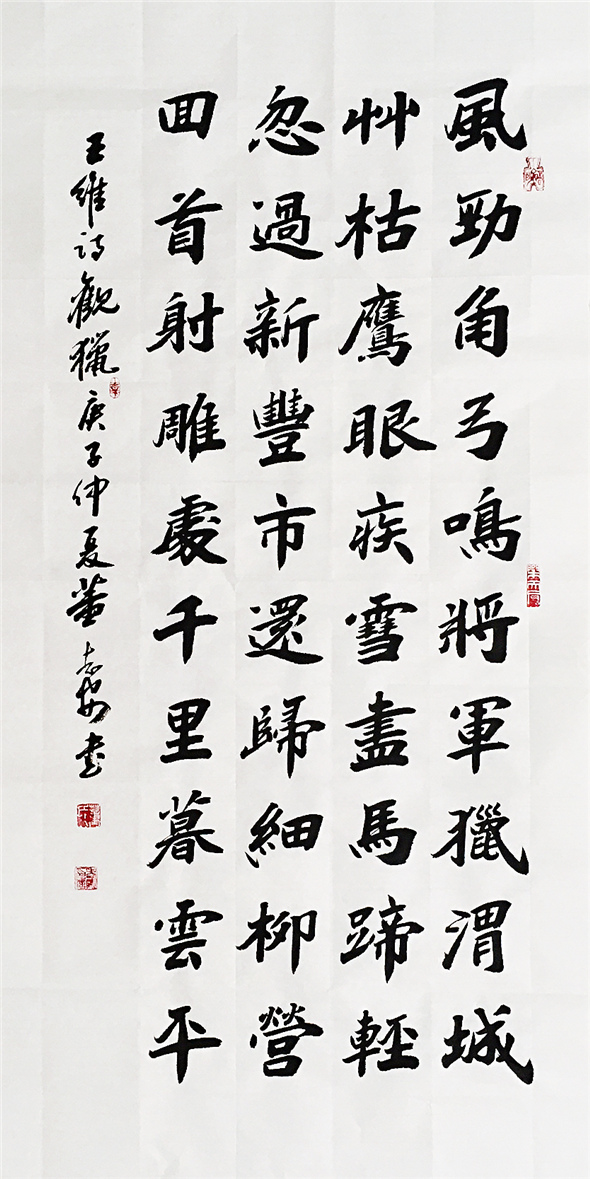 風勁角弓鳴將軍獵渭城
艸枯鷹眼疾雪盡馬蹄輕
忽過新豐市還歸細柳營
回首射雕處千里暮雲平
王維詩觀獵庚子仲夏董志書